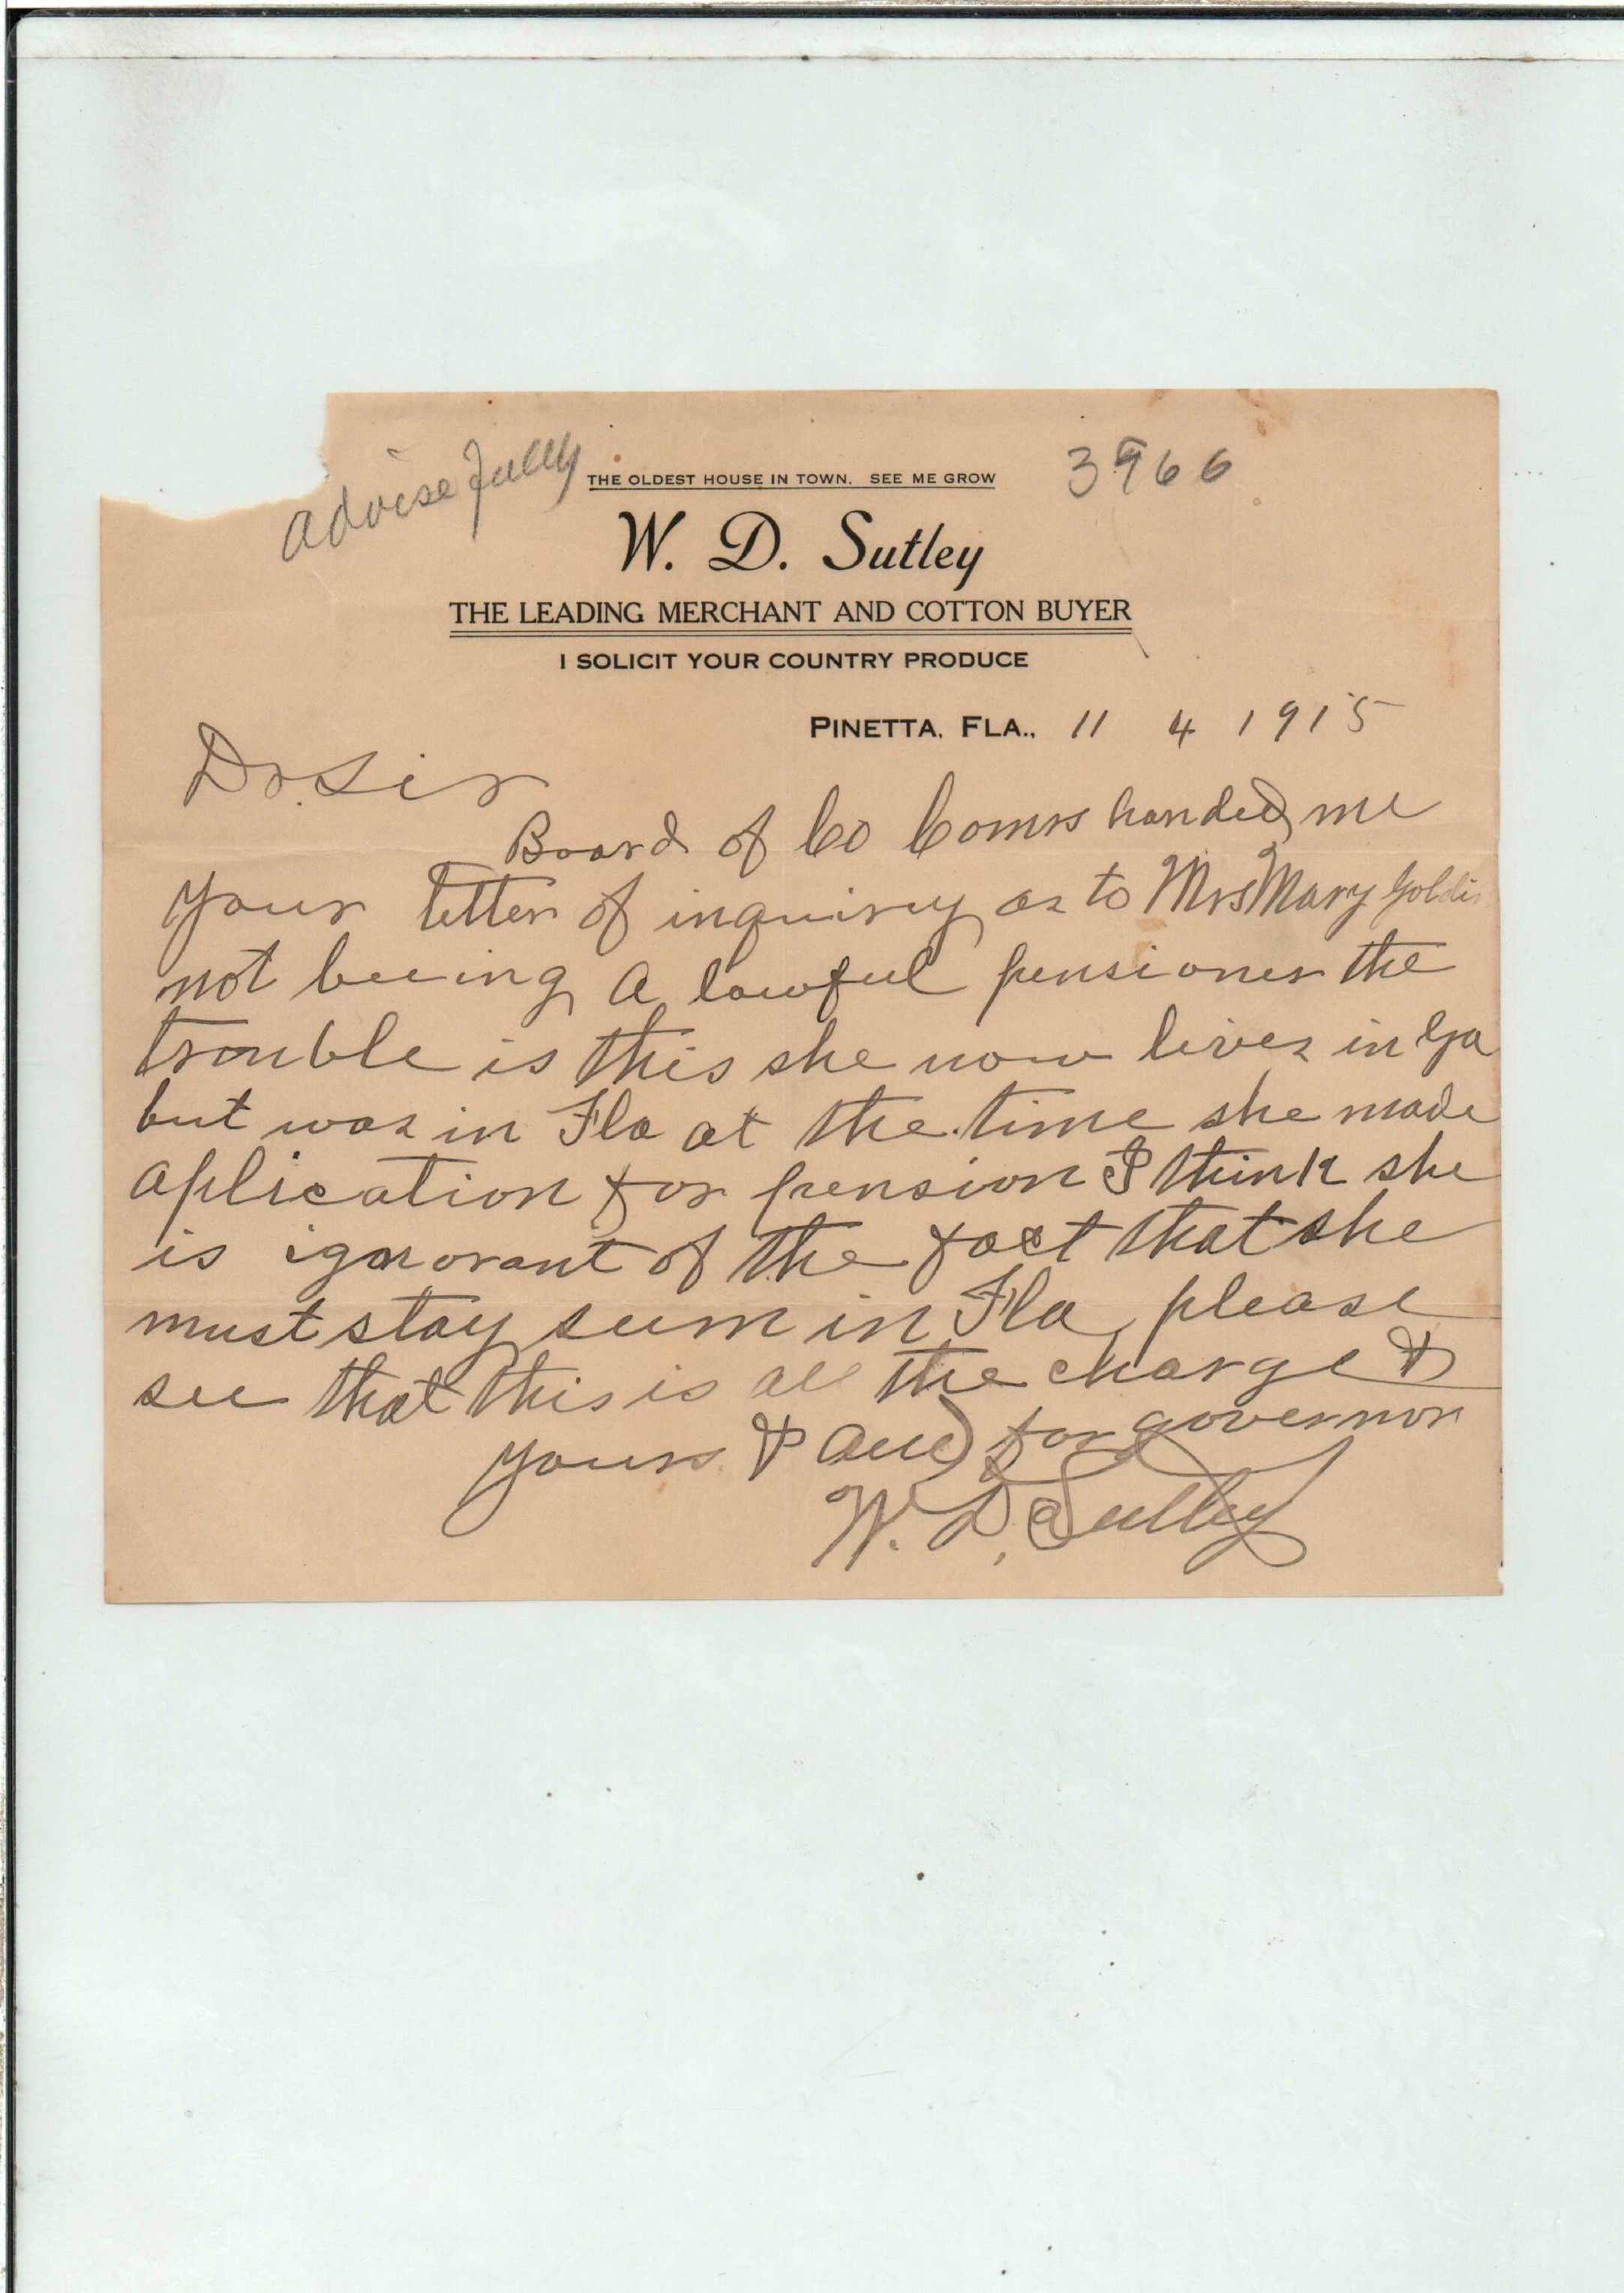 advise fully
3966
THE OLDEST HOUSE IN TOWN. SEE ME GROW
W. D. Sutley
THE LEADING MERCHANT AND COTTON BUYER
I SOLICIT YOUR COUNTRY PRODUCE
PINETTA, FLA., 11 4 1915
Dr. Sir
Board of Co Comrs handed me
your letter of inquirey as to Mrs Mary
not beeing a lawful pensioner the
trouble is this she now lives in Ga
but was in Fla at the time she made
aplication for pension I think she
is ignorant of the fact that she
must stay sum in Fla, please
see that this is all the charge &
yours & and for governor
W. D. Sutley